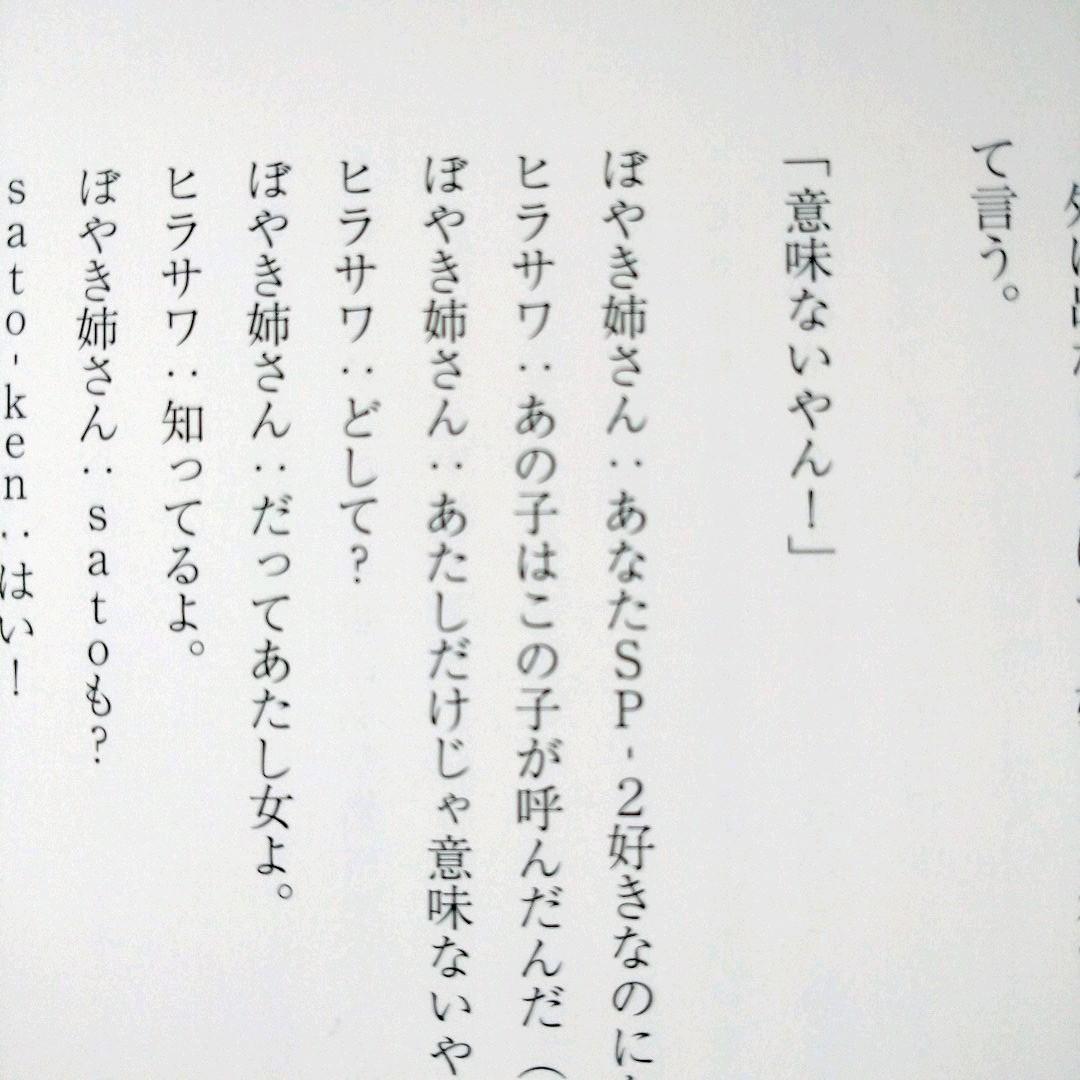 て言う。
「意味ないやん！」
ぼやき姉さん：あなたSP-2好きなのに
ヒラサワ：あの子はこの子が呼んだんだ（
ぼやき姉さん：あたしだけじゃ意味ないや
ヒラサワ：どして？
ぼやき姉さん：だってあたし女よ。
ヒラサワ：知ってるよ。
ぼやき姉さん：satoも？
sato-ken：はい！